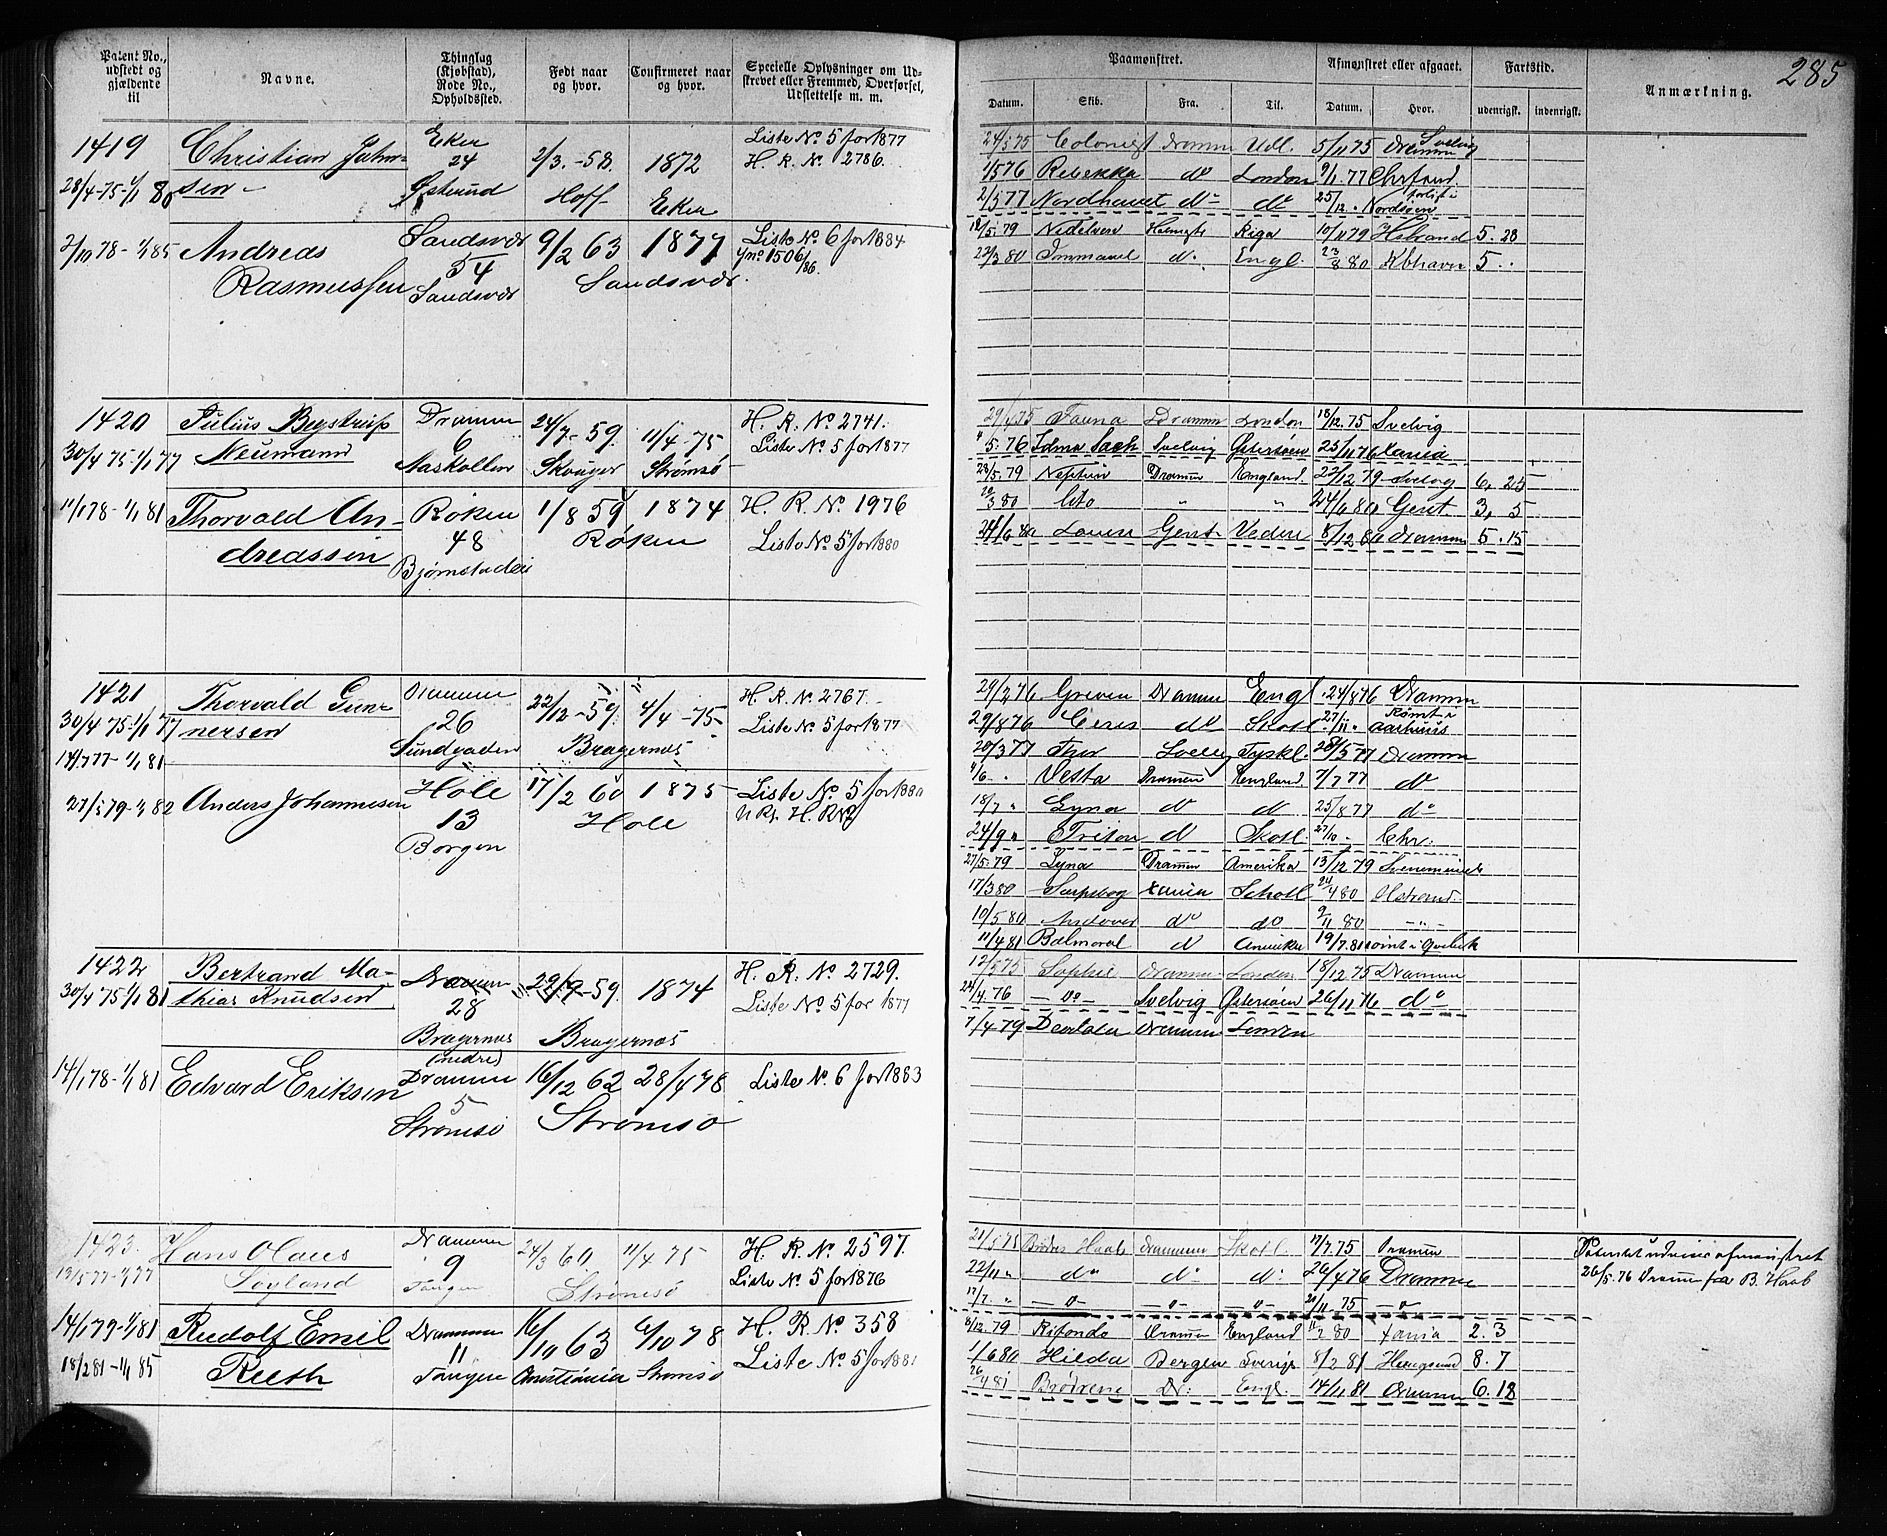 285
Patent No., udstedt og gjældende til
Navne.
Thinglag (Kjøbstad), Rode No., Opholdssted.
Født naar og hvor.
Confirmeret naar og hvor.
Specielle Oplysninger om Udskrevet eller Fremmed, Overførsel, Udslettelse m. m.
Paamønstret.
Afmønstret eller afgaaet.
Fartstid.
Anmærkning.
Datum.
Skib.
Fra.
Til.
Datum.
Hvor.
udenrigsk.
indenrigsk.
1419 Christian Jahn- Eker 2/3.-58. 1872 Liste No 5 for 1877
28/4-75-1/1 80 sen 24 Hoff Eker H. R. No 2786.
24/5 75 Colonist Dramm Udl. 5/11 75 Dramm Svelvig
Rebekka do London 9/1.77
Nordhavet do do 25/12 Nordsøen
2/10 78-1/1 85 Andreas Sandsvær 9/2 63 1877 Liste No 6 for 1884
Rasmussen 54 Sandsvær.
Sandsvær
18/5.79 Riga 10/11 79 5.23
22/3 80 Immanuel do. Engl. 23/8 80 Kbhavn 5..
1420 Julius Bystrup Drammen 24/7-59. 11/4-75 H. R. No 2741.
30/4 75-1/1 77 Neumann 6 Skouger Strømsø Liste No 5 for 1877
29/4 75 Fauna Drammen London 18/12.75 Svelvig
5.76 Svelvig Østersøen 25/11 76 Xania
11/1 78-1/1 81 Thorvald An- Røken 1/8 59 1874 H. R. No 1976
dreassen 48 Røken Liste No 5 for 1880
23/5.79 Neptun Dramen England. 22/12 79 Svelvig 6, 25
20/3 80 Cito " " 24/6 80 Gent 3, 5
24/6 80 Gent. 8/12 80 Dramm 5.15
1421 Thorvald Gun- Drammen 22/12-59. 4/4-75- H. R. No 2767.
30/4 75-1/1 77 nersen 26 Bragernæs Liste No 5 for 1877
14/7 77-1/1 81 Sundgaden
29/2 76 Greven Drammen Engl. 24/8 76 Dramm
29/8 76 Ceres do Skotl. 27/11 Rømt i Aarhuus
20/3 77 Thor Tyskl. 28/5 77 Dramm
4/6 Vesta Dramen England 7/7 77 do
18/7 " do do 25/8 77 do
24/9 " Triton do Skotl. 27/10 Chr.
27/5 79-1/1 82 Anders Johannesen Hole 17/2 60 1875 Liste No 5 for 1880
13 Hole
Borgen
27/5.79 Dramen Amerika 13/12 79
17/3 80 Sarpsborg Xania Schotl 24/4 80
10/5 80 Andover do do 9/11 80
11/4 81 Balmoral do Amerika 19/7.81 rømt i Qvebek
1422 Bertrand Ma- Drammen 29/9-59. 1874 H. R. No 2729.
30/4 75 1/1 81 thias Knudsen 28 Bragernæs Liste No 5 for 1877
Bragernæs
(nedre)
12/5 75 Sophie Drammen London 18/12 75 Dramm
24/4.76 -do- Svelvig Østersøen 26/11 76 do
14/1 78-1/1 81 Edvard Eriksen Drammen 16/12 62 28/4 78 Liste No. 6 for 1883
5 Strømsø
Strømsø
7/4.79 Drammen
1423. Hans Olaus Drammen 24/3 60. 11/4 75 H. R. No. 2597.
Søyland 9 Strømsø Liste No 5 for 1876
Tangen
Haab Drammen Skotl. 17/7.75 Dramen
22/11 " do do do 26/4 76 Dramme
17/7. " -o- -o- -o- -o-
26/5.76 Dramen fra B. Haab
14/1 79-1/1 81 Rudolf Emil Drammen 16/10 63 6/10 78 H. R. No 358
18/2 81-1/1 85 Rieth 11 Christiania Strømsø Liste No 5 for 1881
Tangen
8/12.79 Dramen England 11/2 80 Xania 2.3
1/6 80 Hilda Bergen Sverige 8/2 81 Haugsund 8.7
26/4 81 Brødrene Dr: Engl. 14/11 81 Drammen 6.18